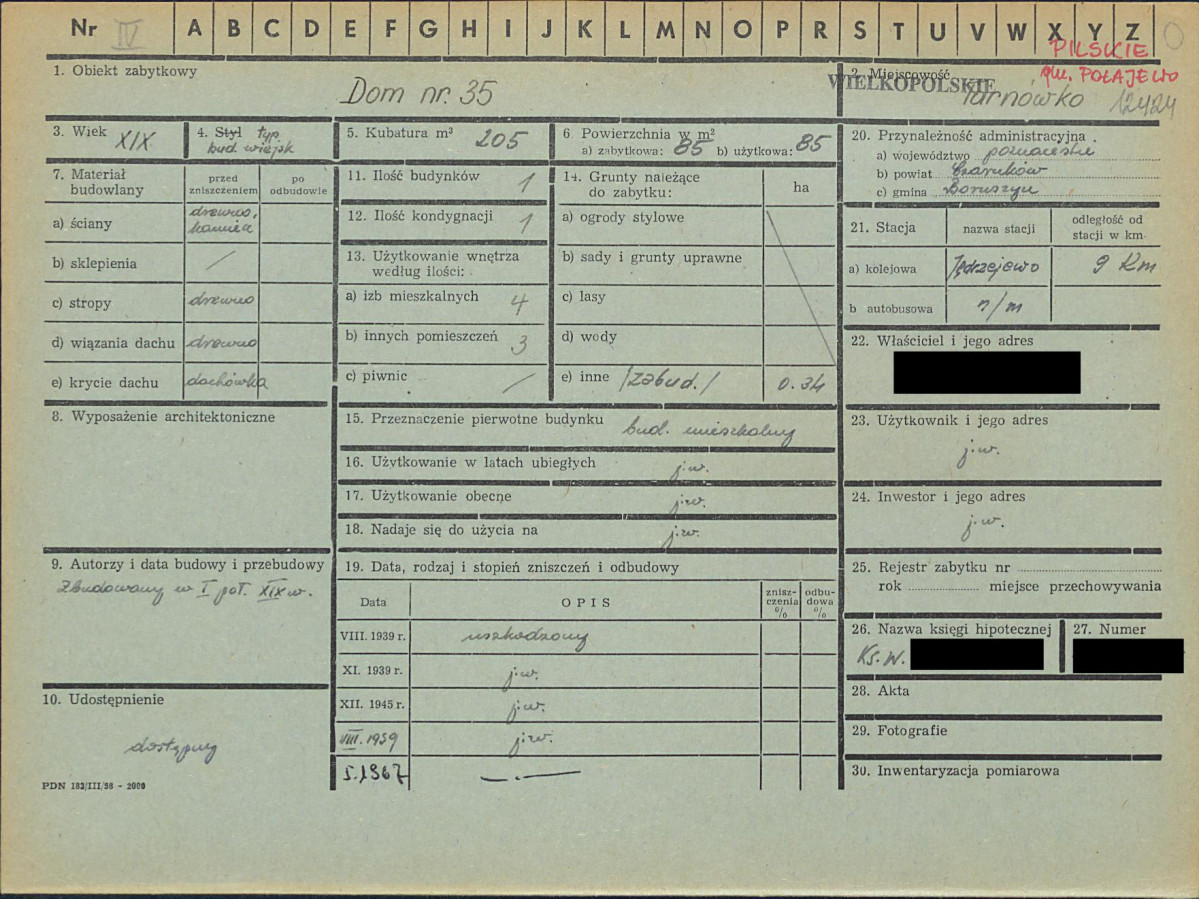 Nr IV A B C D E F G H I J K L M N O P R S T U V W X Y Z 0
PILSKIE
gm. POŁAJEWO
1. Obiekt zabytkowy
Dom nr. 35
2. Miejscowość
WIELKOPOLSKIE
Tarnówko 12424
3. Wiek XIX
4. Styl typ
bud. wiejsk
5. Kubatura m³ 205
6 Powierzchnia w m²
a) zabytkowa: 85 b) użytkowa: 85
7. Materiał
budowlany
przed
zniszczeniem
po
odbudowie
a) ściany drewno,
kamień
b) sklepienia /
c) stropy drewno
d) wiązania dachu drewno
e) krycie dachu dachówka
8. Wyposażenie architektoniczne
9. Autorzy i data budowy i przebudowy
Zbudowany w I poł. XIX w.
10. Udostępnienie
dostępny
PDN 182/III/58 - 2000
11. Ilość budynków 1
12. Ilość kondygnacji 1
13. Użytkowanie wnętrza
według ilości:
a) izb mieszkalnych 4
b) innych pomieszczeń 3
c) piwnic /
14. Grunty należące
do zabytku:
ha
a) ogrody stylowe
b) sady i grunty uprawne
c) lasy
d) wody
e) inne /zabud./ 0.34
15. Przeznaczenie pierwotne budynku bud. mieszkalny
16. Użytkowanie w latach ubiegłych j.w.
17. Użytkowanie obecne j.w.
18. Nadaje się do użycia na j.w.
19. Data, rodzaj i stopień zniszczeń i odbudowy
Data
OPIS
znisz-
czenia
%
odbu-
dowa
%
VIII. 1939 r. uszkodzony
XI. 1939 r. j.w.
XII. 1945 r. j.w.
VIII. 1959 j.w.
5.1967 — . —
20. Przynależność administracyjna
a) województwo poznańskie
b) powiat Czarnków
c) gmina Boruszyn
21. Stacja
nazwa stacji
odległość od
stacji w km
a) kolejowa Jędrzejewo 9 Km
b autobusowa n/m
22. Właściciel i jego adres
23. Użytkownik i jego adres
j.w.
24. Inwestor i jego adres
j.w.
25. Rejestr zabytku nr
rok miejsce przechowywania
26. Nazwa księgi hipotecznej
Ks. W.
27. Numer
28. Akta
29. Fotografie
30. Inwentaryzacja pomiarowa